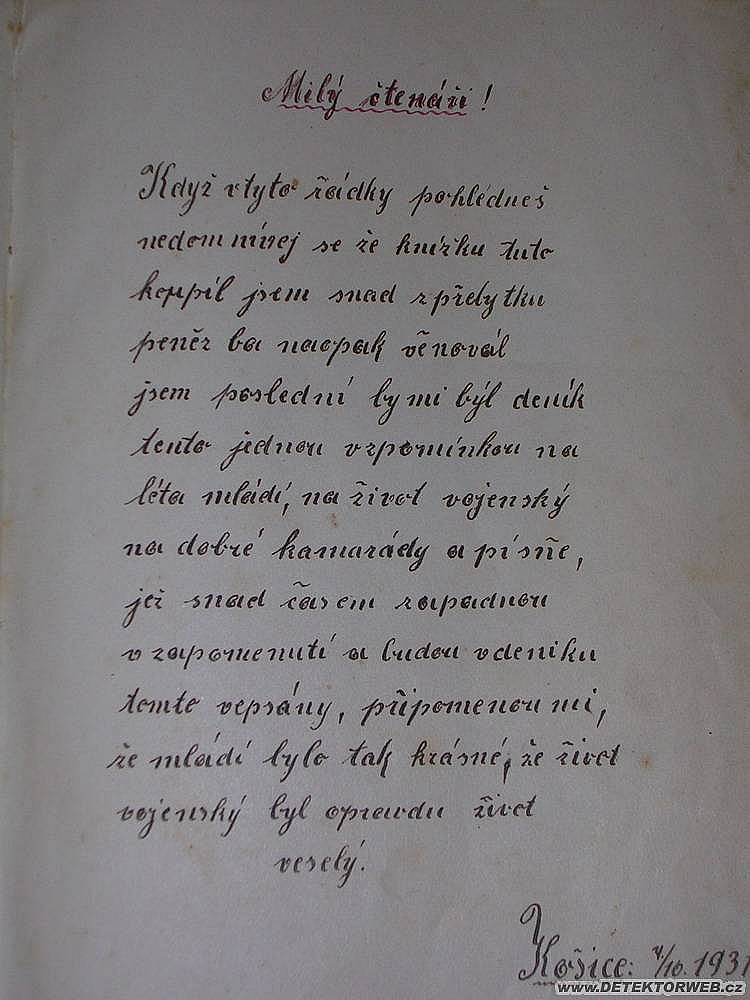 Milý čtenáři!
Když v tyto řádky pohlédneš
nedomnívej se že knížku tuto
koupil jsem snad z přebytku
peněz ba naopak věnovál
jsem poslední by mi býl deník
tento jednou vzpomínkou na
léta mládí, na život vojenský
na dobré kamarády a písně,
jež snad časem zapadnou
v zapomenutí a budou v deniku
tomto vepsány, připomenou mi,
že mládí bylo tak krásné, že život
vojenský byl opravdu život
veselý.
Košice: /10. 1931
www.DETEKTORWEB.cz